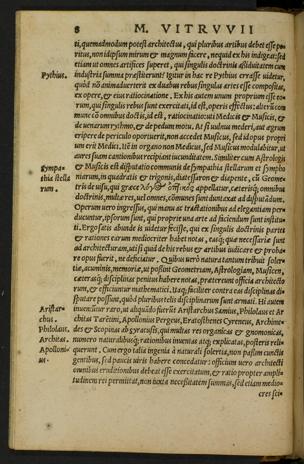 8 M. VITRVVII
ti, quemadmodum potest architectus, qui pluribus artibus debet esse pe-
ritus, non id ipsum mirum & magnum facere, nequid ex his indigeat: sed
etiam ut omnes artifices superet, qui singulis doctrinis assiduitatem cum
Pythius. industria summa præstiterunt? Igitur in hac re Pythius errasse uidetur,
quòd non animaduerterit ex duabus rebus singulas artes esse compositas,
ex opere, & eius ratiocinatione. Ex his autem unum proprium esse eo-
rum, qui singulis rebus sunt exercitati, id est, operis effectus: alterum com
mune cum omnibus doctis, id est, ratiocinatio: uti Medicis & Musicis, &
de uenarum rythmo, & de pedum motu. At si uulnus mederi, aut ægrum
eripere de periculo oportuerit, non accedet Musicus, sed id opus propri
um erit Medici. Ité in organo non Medicus, sed Musicus modulabitur, ut
aures suam cantionibus recipiant iucunditatem. Similiter cum Astrologis
Sympa- & Musicis est disputatio communis de sympathia stellarum & sympho
thia stella niarum, in quadratis & trigonis, diatessaron & diapente, cum Geome-
rum. tris de uisu, qui græcè appellatur, cæterisq; omnibus
doctrinis, multæ res, uel omnes, communes sunt duntaxat ad disputandum.
Operum uero ingressus, qui manu ac tractationibus ad elegantiam per-
ducuntur, ipsorum sunt, qui proprie una arte ad faciendum sunt institu-
ti. Ergo satis abunde is uidetur fecisse, qui ex singulis doctrinis partes
& rationes earum mediocriter habet notas, easq; quæ necessariæ sunt
ad architecturam, uti si quid de his rebus & artibus iudicare & proba-
re opus fuerit, ne deficiatur. Quibus uero natura tantum tribuit soler-
tiæ, acuminis, memoriæ, ut possint Geometriam, Astrologiam, Musicen,
cæterasq; disciplinas penitus habere notas, prætereunt officia architecto
rum, & efficiuntur mathematici. Itaq; faciliter contra eas disciplinas di-
sputare possunt, quòd pluribus telis disciplinarum sunt armati. Hi autem
Aristar- inueniuntur raro, ut aliquando fuerunt Aristarchus Samius, Philolaus et Ar
chus. chitas Tarentini, Apollonius Pergeus, Eratosthenes Cyreneus, Archime-
Philolaus. des & Scopinas ab Syracusis, qui multas res organicas & gnomonicas,
Architas. numero naturalibusq; rationibus inuentas atq; explicatas, posteris reli-
Apolloni- querunt. Cum ergo talia ingenia à naturali solertia, non passim cunctis
us. gentibus, sed paucis uiris habere concedatur: officium uero architecti
omnibus eruditionibus debeat esse exercitatum, & ratio propter ampli-
tudinem rei permittat, non iuxta necessitatem summas, sed etiam medio-
cres sci-